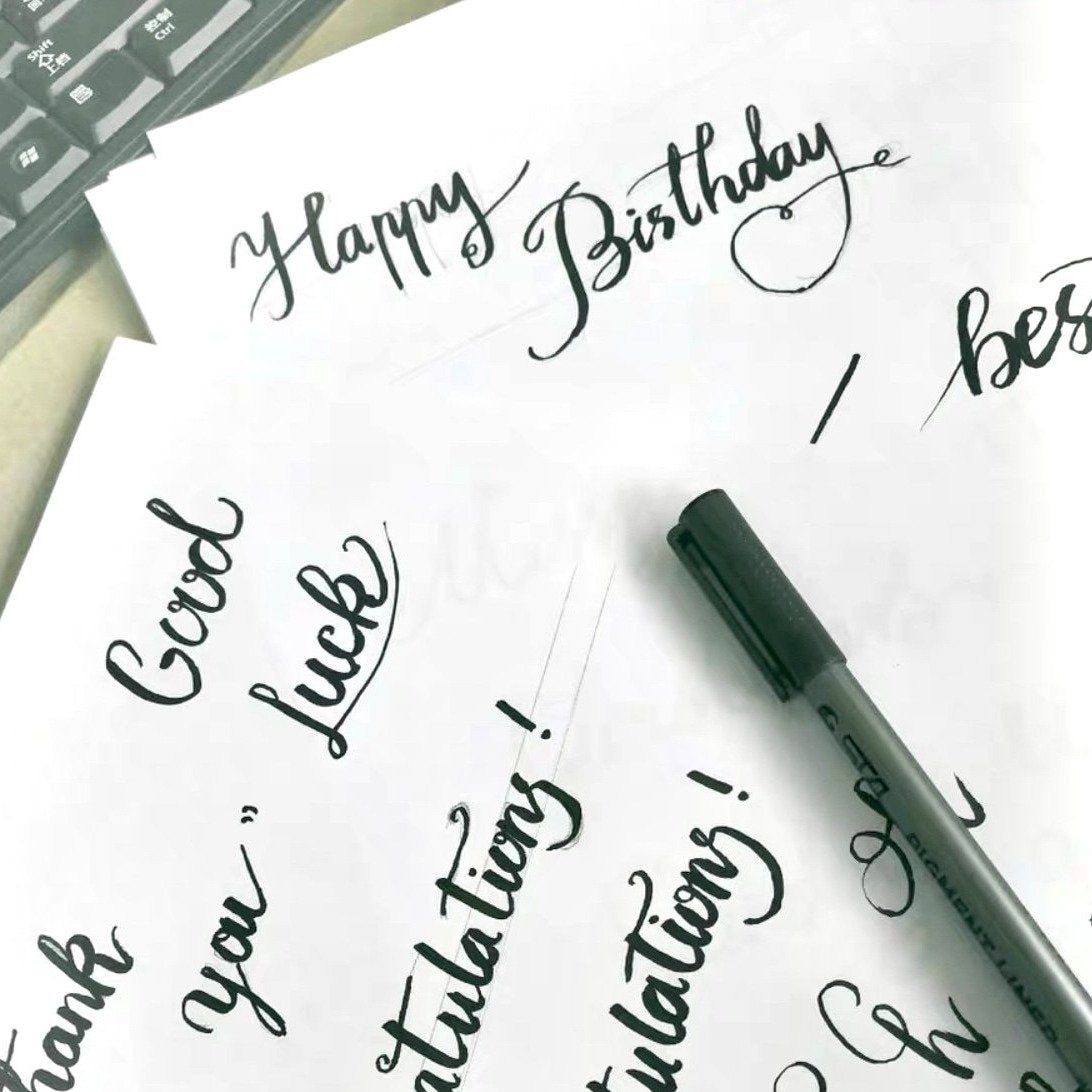 Shift
上档
控制
Ctrl
Happy Birthday
bes
Good
Luck
thank
you”
atulations!
tulations!
PIGMENT LINER
Ch